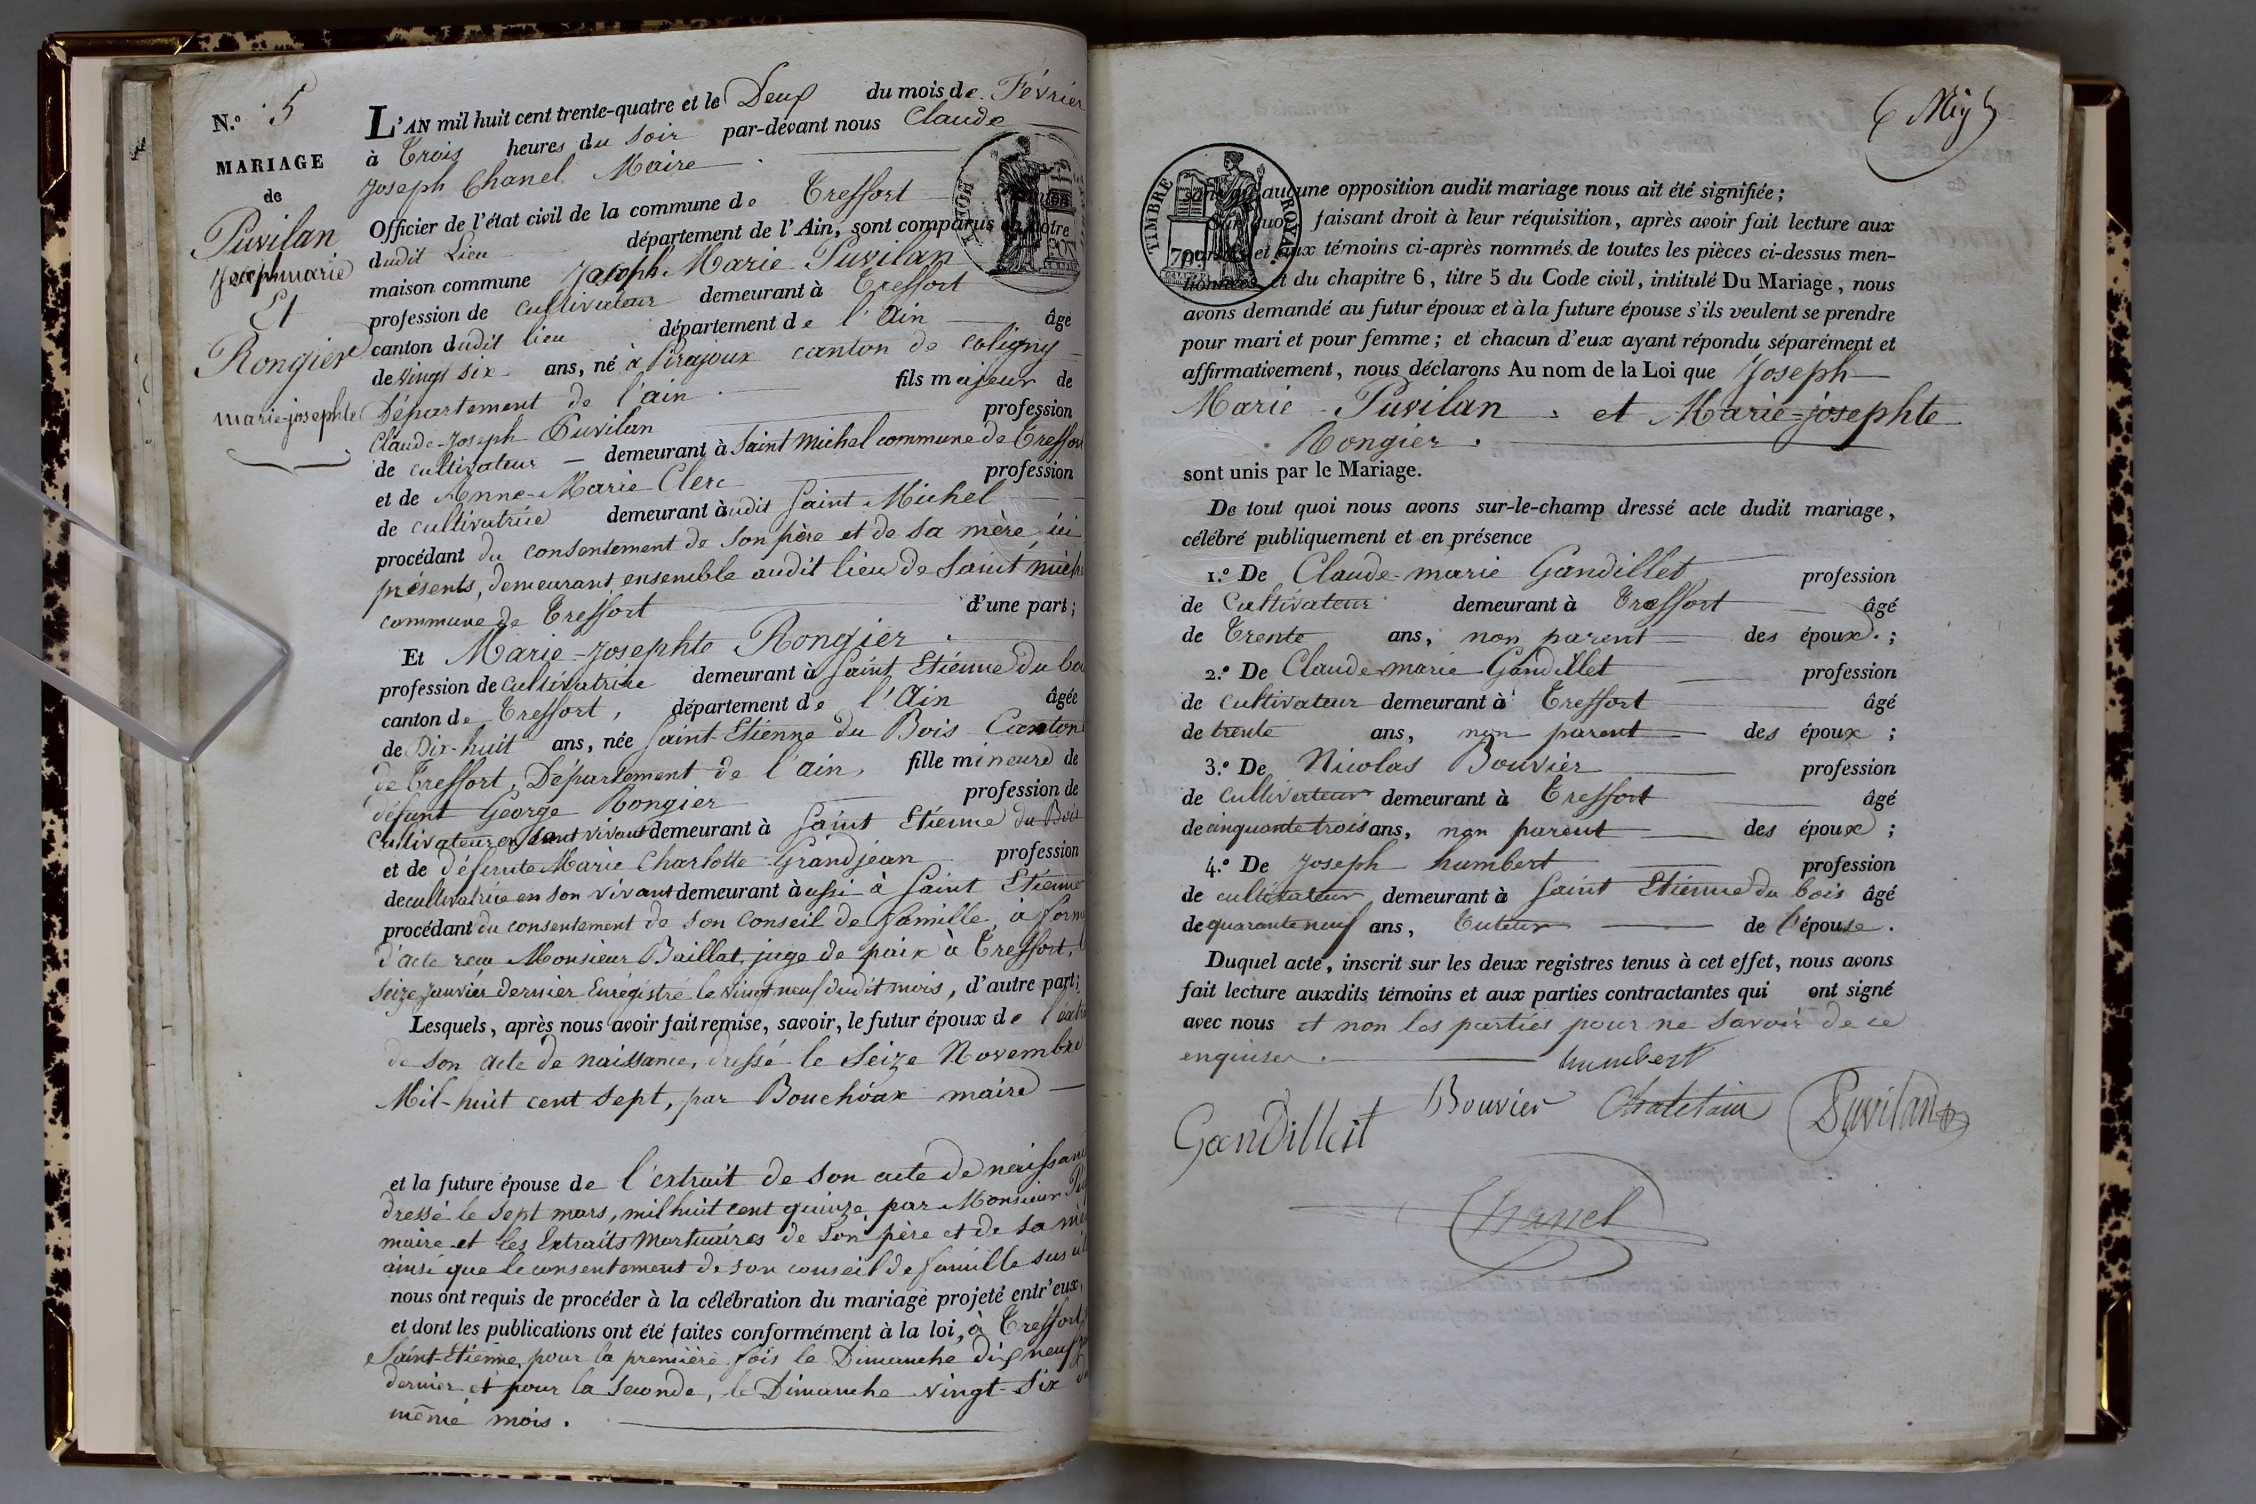 N.º 5
MARIAGE
de
Puvilan
Joseph marie
Et
Rongier
marie-josephte
L'AN mil huit cent trente-quatre et le Deux du mois de Février
à Trois heures du soir par-devant nous Claude
Joseph Chanel Maire
Officier de l'état civil de la commune de Treffort
dudit Lieu département de l'Ain, sont comparus en notre
maison commune Joseph Marie Puvilan
profession de cultivateur demeurant à Treffort
canton dudit lieu département de l'Ain âgé
de vingt six ans, né à Pirajoux canton de Coligny
Département de l'ain fils majeur de
Claude-Joseph Puvilan profession
de cultivateur demeurant à Saint Michel commune de Treffort
et de Anne-Marie Clerc profession
de cultivatrice demeurant audit Saint Michel
procédant du consentement de son père et de sa mère, ici
présents, demeurant ensemble audit lieu de Saint
commune de Treffort d'une part;
Et Marie-Josephte Rongier
profession de cultivatrice demeurant à Saint Etienne du
canton de Treffort, département de l'Ain âgée
de Dix-huit ans, née Saint-Etienne du Bois Canton
de Treffort, Département de l'ain, fille mineure de
défunt George Rongier profession de
Cultivateur en son vivant demeurant à Saint Etienne du Bois
et de défunte Marie Charlotte Grandjean profession
de cultivatrice en son vivant demeurant aussi à Saint Etienne
procédant du consentement de son Conseil de famille, à
d'acte reçu Monsieur Baillat, juge de paix à Treffort,
seize Janvier dernier Enregistré le vingt neuf dudit mois, d'autre part;
Lesquels, après nous avoir fait remise, savoir, le futur époux de
de son acte de naissance, dressé le Seize Novembre
Mil-huit cent sept, par Bouchoux maire
et la future épouse de l'extrait de son acte de
dressé le Sept mars, mil huit cent quinze par Monsieur
maire et les Extraits Mortuaires de Son père et de sa
ainsi que le consentement de son conseil de famille sus
nous ont requis de procéder à la célébration du mariage projeté entr'eux,
et dont les publications ont été faites conformément à la loi, à Treffort
Saint-Etienne, pour la première fois le Dimanche dix neuf
dernier et pour la Seconde, le Dimanche vingt-Six
même mois.
TIMBRE ROYAL
70
aucune opposition audit mariage nous ait été signifiée;
faisant droit à leur réquisition, après avoir fait lecture aux
et aux témoins ci-après nommés de toutes les pièces ci-dessus men-
tionnées et du chapitre 6, titre 5 du Code civil, intitulé Du Mariage, nous
avons demandé au futur époux et à la future épouse s'ils veulent se prendre
pour mari et pour femme; et chacun d'eux ayant répondu séparément et
affirmativement, nous déclarons Au nom de la Loi que Joseph
Marie Puvilan et Marie-josephte
Rongier.
sont unis par le Mariage.
De tout quoi nous avons sur-le-champ dressé acte dudit mariage,
célébré publiquement et en présence
1.º De Claude-marie Gandillet profession
de Cultivateur demeurant à Treffort âgé
de Trente ans, non parent des époux;
2.º De Claude marie Gandillet profession
de cultivateur demeurant à Treffort âgé
de trente ans, non parent des époux;
3.º De Nicolas Bouvier profession
de cultivateur demeurant à Treffort âgé
de cinquante trois ans, non parent des époux;
4.º De Joseph humbert profession
de cultivateur demeurant à Saint Etienne du bois âgé
de quarante neuf ans, Tuteur de l'épouse.
Duquel acte, inscrit sur les deux registres tenus à cet effet, nous avons
fait lecture auxdits témoins et aux parties contractantes qui ont signé
avec nous et non les parties pour ne savoir de ce
enquises.
humbert
Gandillet Bouvier Chatelain Puvilan
Chanel